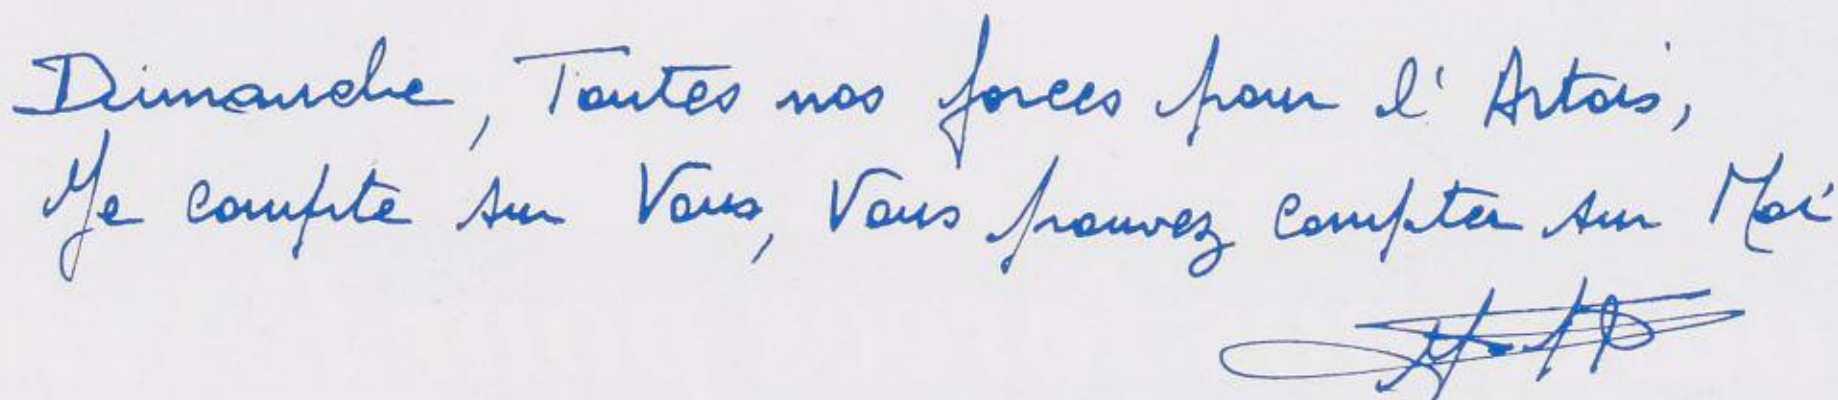 Dimanche, Toutes nos forces pour l'Artois,
Je compte sur Vous, Vous pouvez compter sur Moi